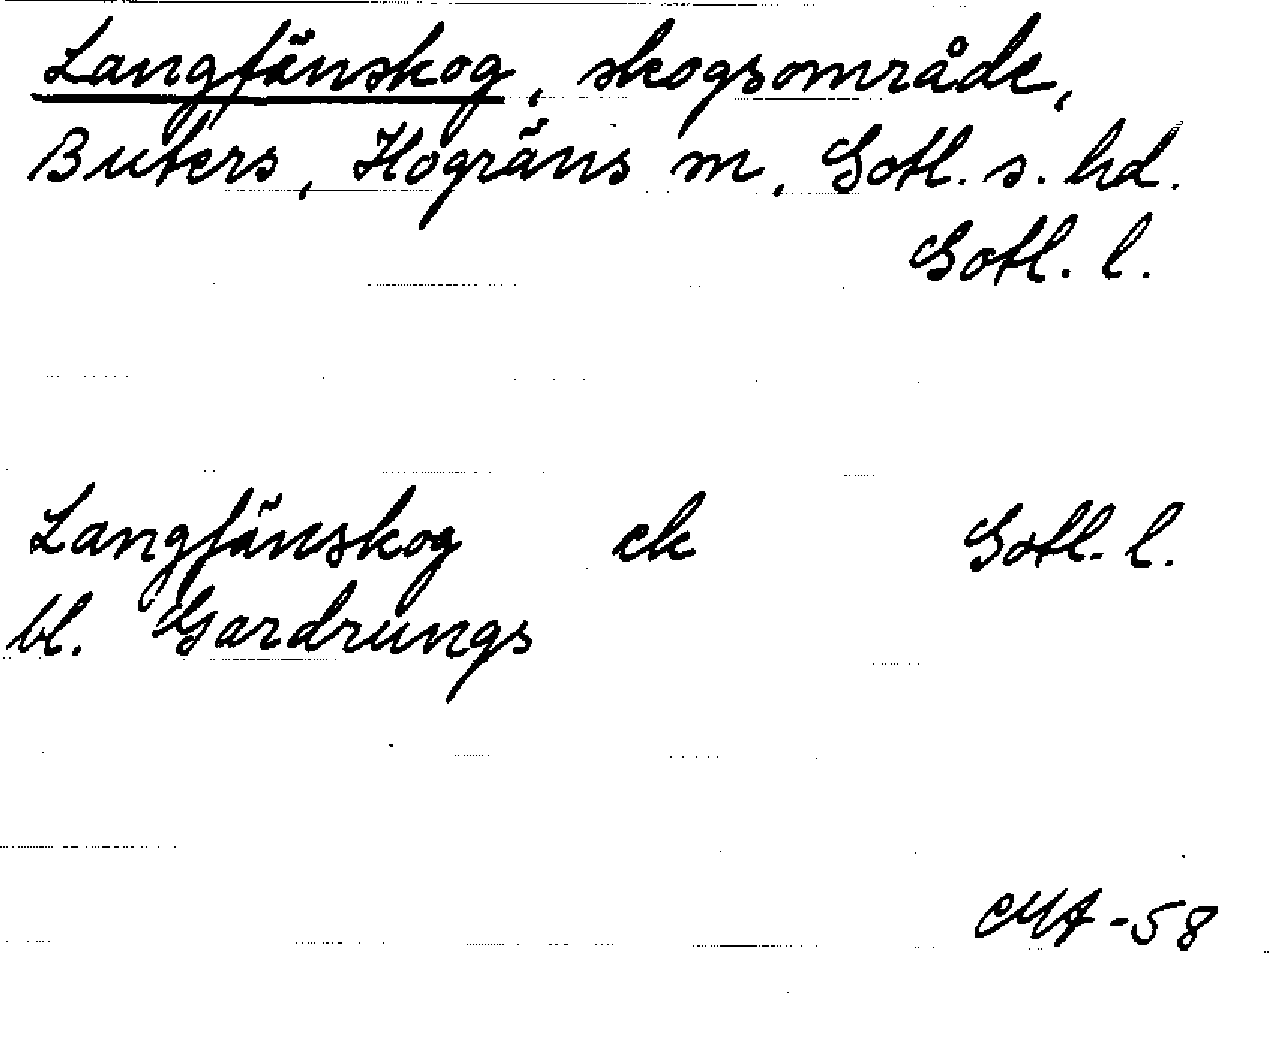 Langfänskog, skogsområde,
Buters, Hogräns m, Gotl. s. hd.
Gotl. l.
Langfänskog ek Gotl. l.
bl. Gardrungs
CMA-58